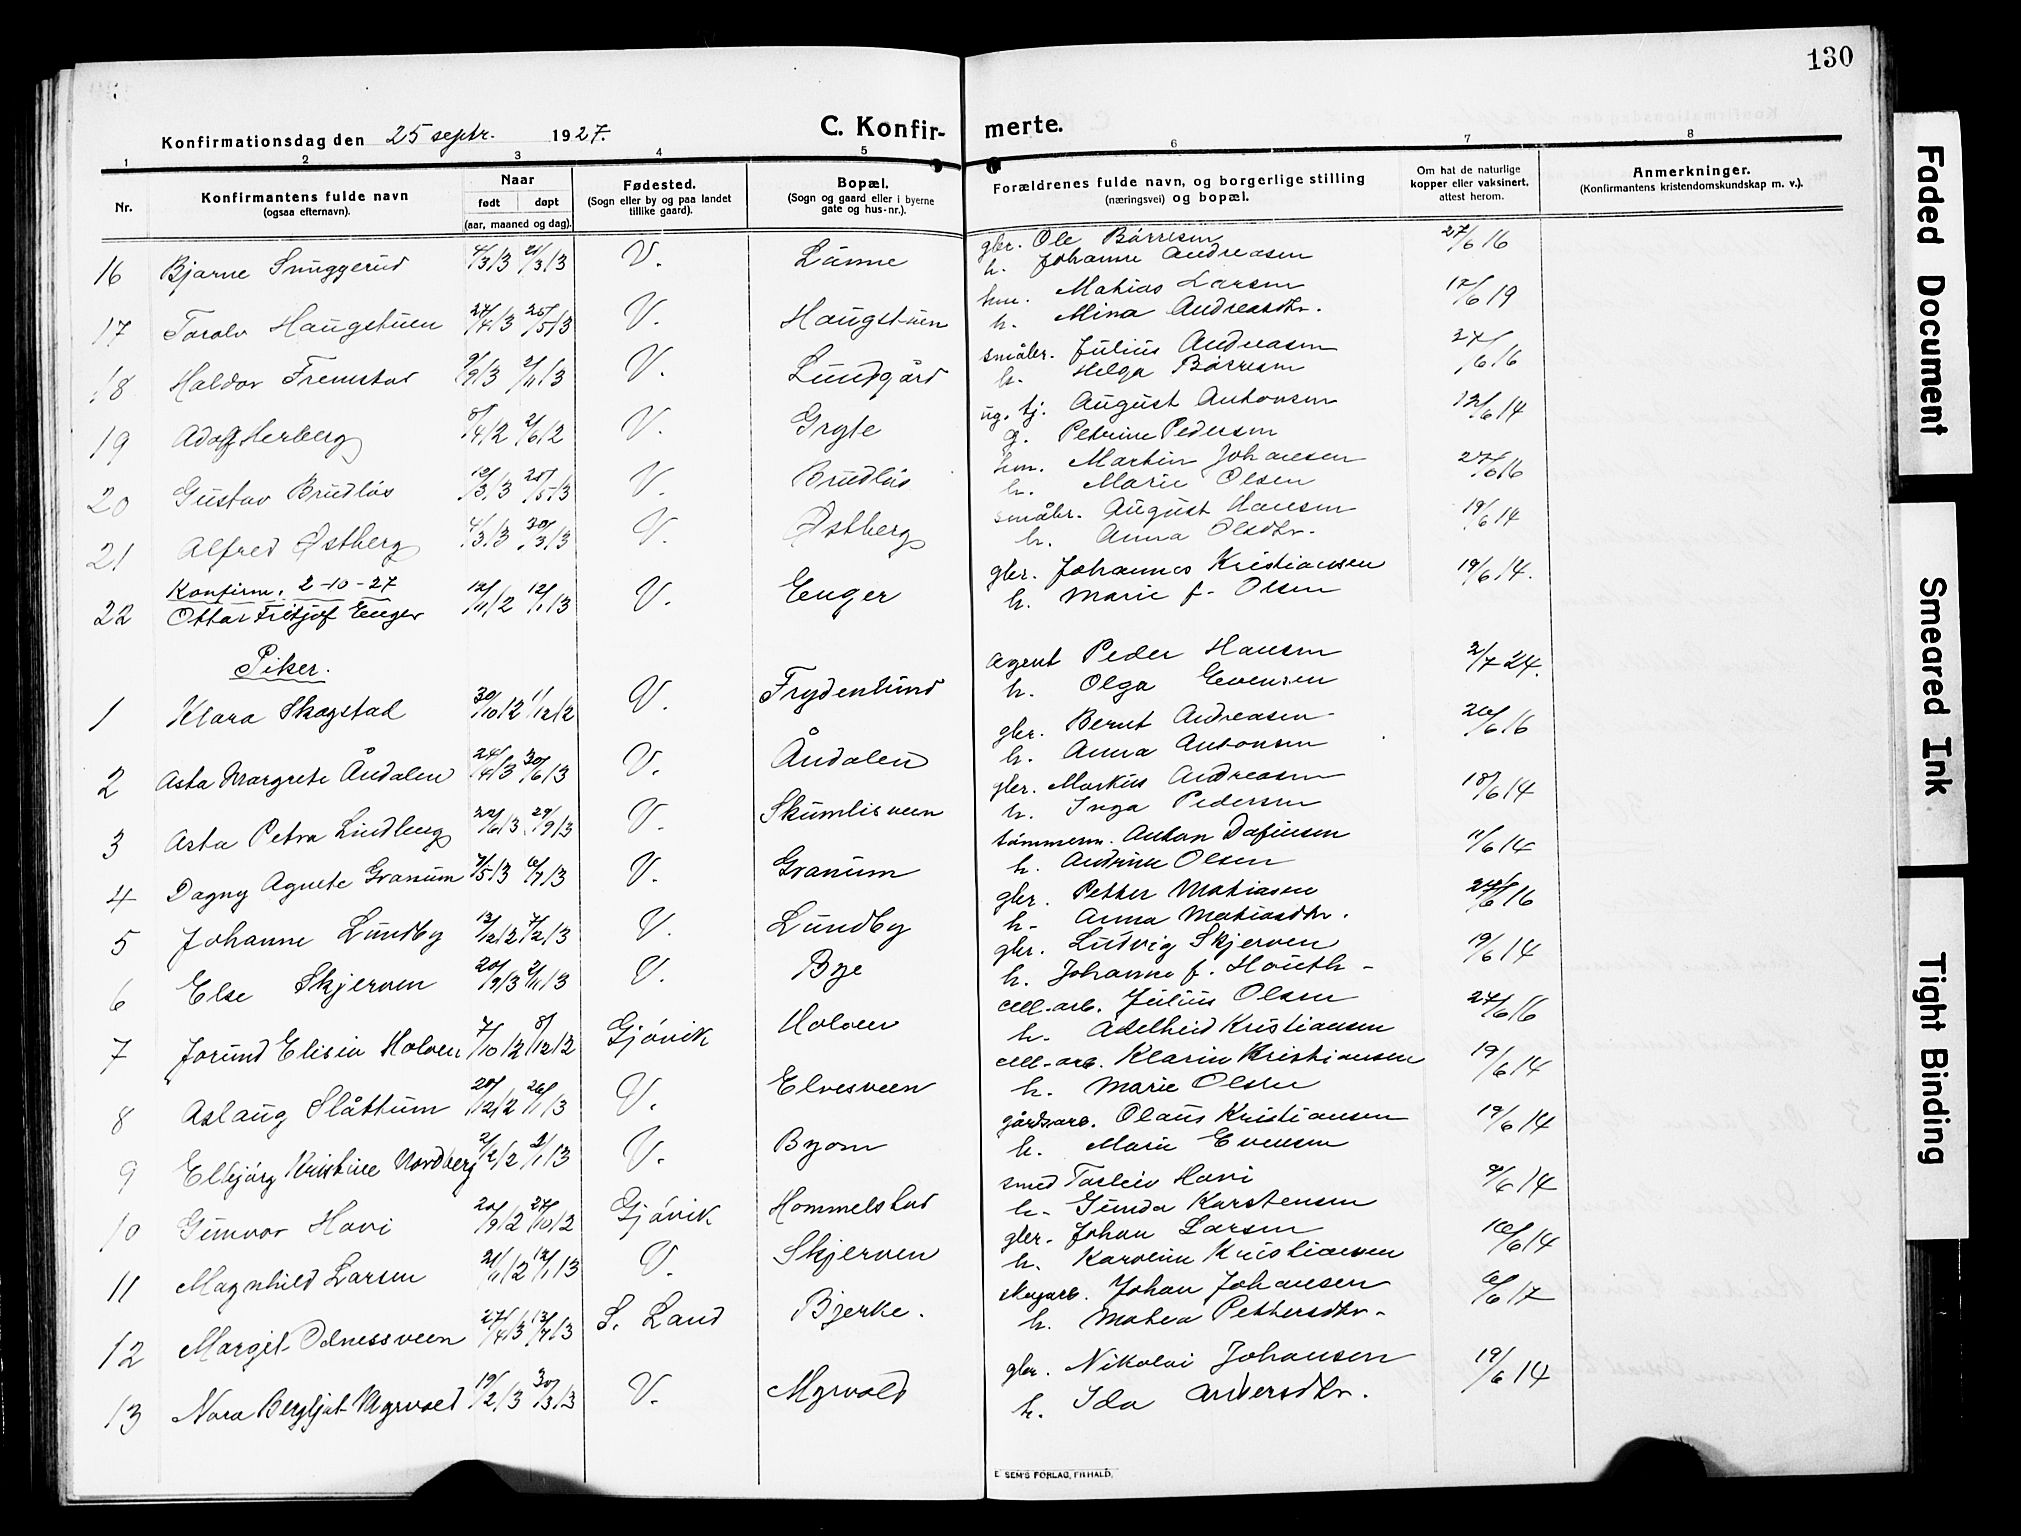 130
Konfirmationsdag den 25 septr. 1927.
C. Konfirmerte.
1 2 3 4 5 6 7 8
Nr. Konfirmantens fulde navn (ogsaa efternavn). Naar født døpt (aar, maaned og dag). Fødested. (Sogn eller by og paa landet tillike gaard). Bopæl. (Sogn og gaard eller i byerne gate og hus-nr.). Forældrenes fulde navn, og borgerlige stilling (næringsvei) og bopæl. Om hat de naturlige kopper eller vaksinert, attest herom. Anmerkninger. (Konfirmantens kristendomskundskap m. v.).
16 Bjarne Snuggerud 4/3 13 21/3 13 V. Lønne gbr. Ole Børresen 27/6 16
h. Johanne Andreasen
17 Toralv Haugstuen 27/4 13 25/5 13 V. Haugstuen hm. Matias Larsen 12/6 19
h. Mina Andreasdtr.
18 Haldor Fremstad 9/9 13 2/11 13 V. Lundgård småbr. Julius Andreasen 27/6 16
h. Helga Børresen
19 Adolf Herberg 8/4 12 2/6 12 V. Gryte ug. tj. August Antonsen 12/6 14
g. Petrine Pedersen
20 Gustav Brudløs 12/3 13 25/5 13 V. Brudløs hm. Martin Johansen 27/6 16
h. Marie Olsen
21 Alfred Østberg 4/3 13 30/3 13 V. Østberg småbr. August Hansen 19/6 14
h. Anna Olsdtr.
Konfirm. 2-10-27
22 Ottar Fritjof Enger 12/11 12 12/1 13 V. Enger gbr. Johannes Kristiansen 19/6 14.
h. Marie f. Olsen
Piker.
1 Klara Skogstad 30/10 12 1/12 12 V. Frydenlund Agent Peder Hansen 2/7 24.
h. Olga Evensen
2 Asta Margrete Åndalen 24/4 13 30/6 13 V. Åndalen gbr. Bernt Andreasen 26/6 16
h. Anna Antonsen
3 Asta Petra Lindberg 22/6 13 29/9 13 V. Skumlisveen gbr. Markus Andreasen 18/6 14
h. Inga Pedersen
4 Dagny Agnete Granum 7/5 13 6/7 13 V. Granum tømmerm. Anton Dafinsen 11/6 14
h. Andrine Olsen
5 Johanne Lundby 13/12 12 7/2 13 V. Lundby gbr. Petter Matiasen 27/6 16
h. Anna Matiasdtr.
6 Else Skjerven 20/9 13 2/11 13 V. Bye gbr. Ludvig Skjerven 19/6 14
h. Johanne f. Houth
7 Jorund Elisia Holven 7/10 12 8/12 12 Gjøvik Holven cell-arb. Julius Olsen 27/6 16
h. Adelheid Kristiansen
8 Aslaug Slåttum 20/12 12 26/1 13 V. Elvesveen cell-arb. Klarin Kristiansen 19/6 14
h. Marie Olsen
9 Elbjørg Kristine Nordberg 2/12 12 2/1 13 V. Byom gårdsarb. Olaus Kristiansen 19/6 14
h. Marie Evensen
10 Gunvor Hovi 20/9 12 27/10 12 Gjøvik Hommelstad smed Torleiv Hovi 9/6 14
h. Gunda Karstensen
11 Magnhild Larsen 21/11 12 12/1 13 V. Skjerven gbr. Johan Larsen 10/6 14
h. Karoline Kristiansen
12 Margit Odnessveen 27/4 13 13/7 13 S. Land Bjerke. skogarb. Johan Johansen 6/6 17
h. Matea Pettersdtr.
13 Nora Bergljot Myrvold 19/2 13 30/3 13 V. Myrvold gbr. Nikolai Johansen 19/6 14
h. Ida Andersdtr.
E SEM'S FORLAG, FR.HALD.
Faded Document
Smeared Ink
Tight Binding